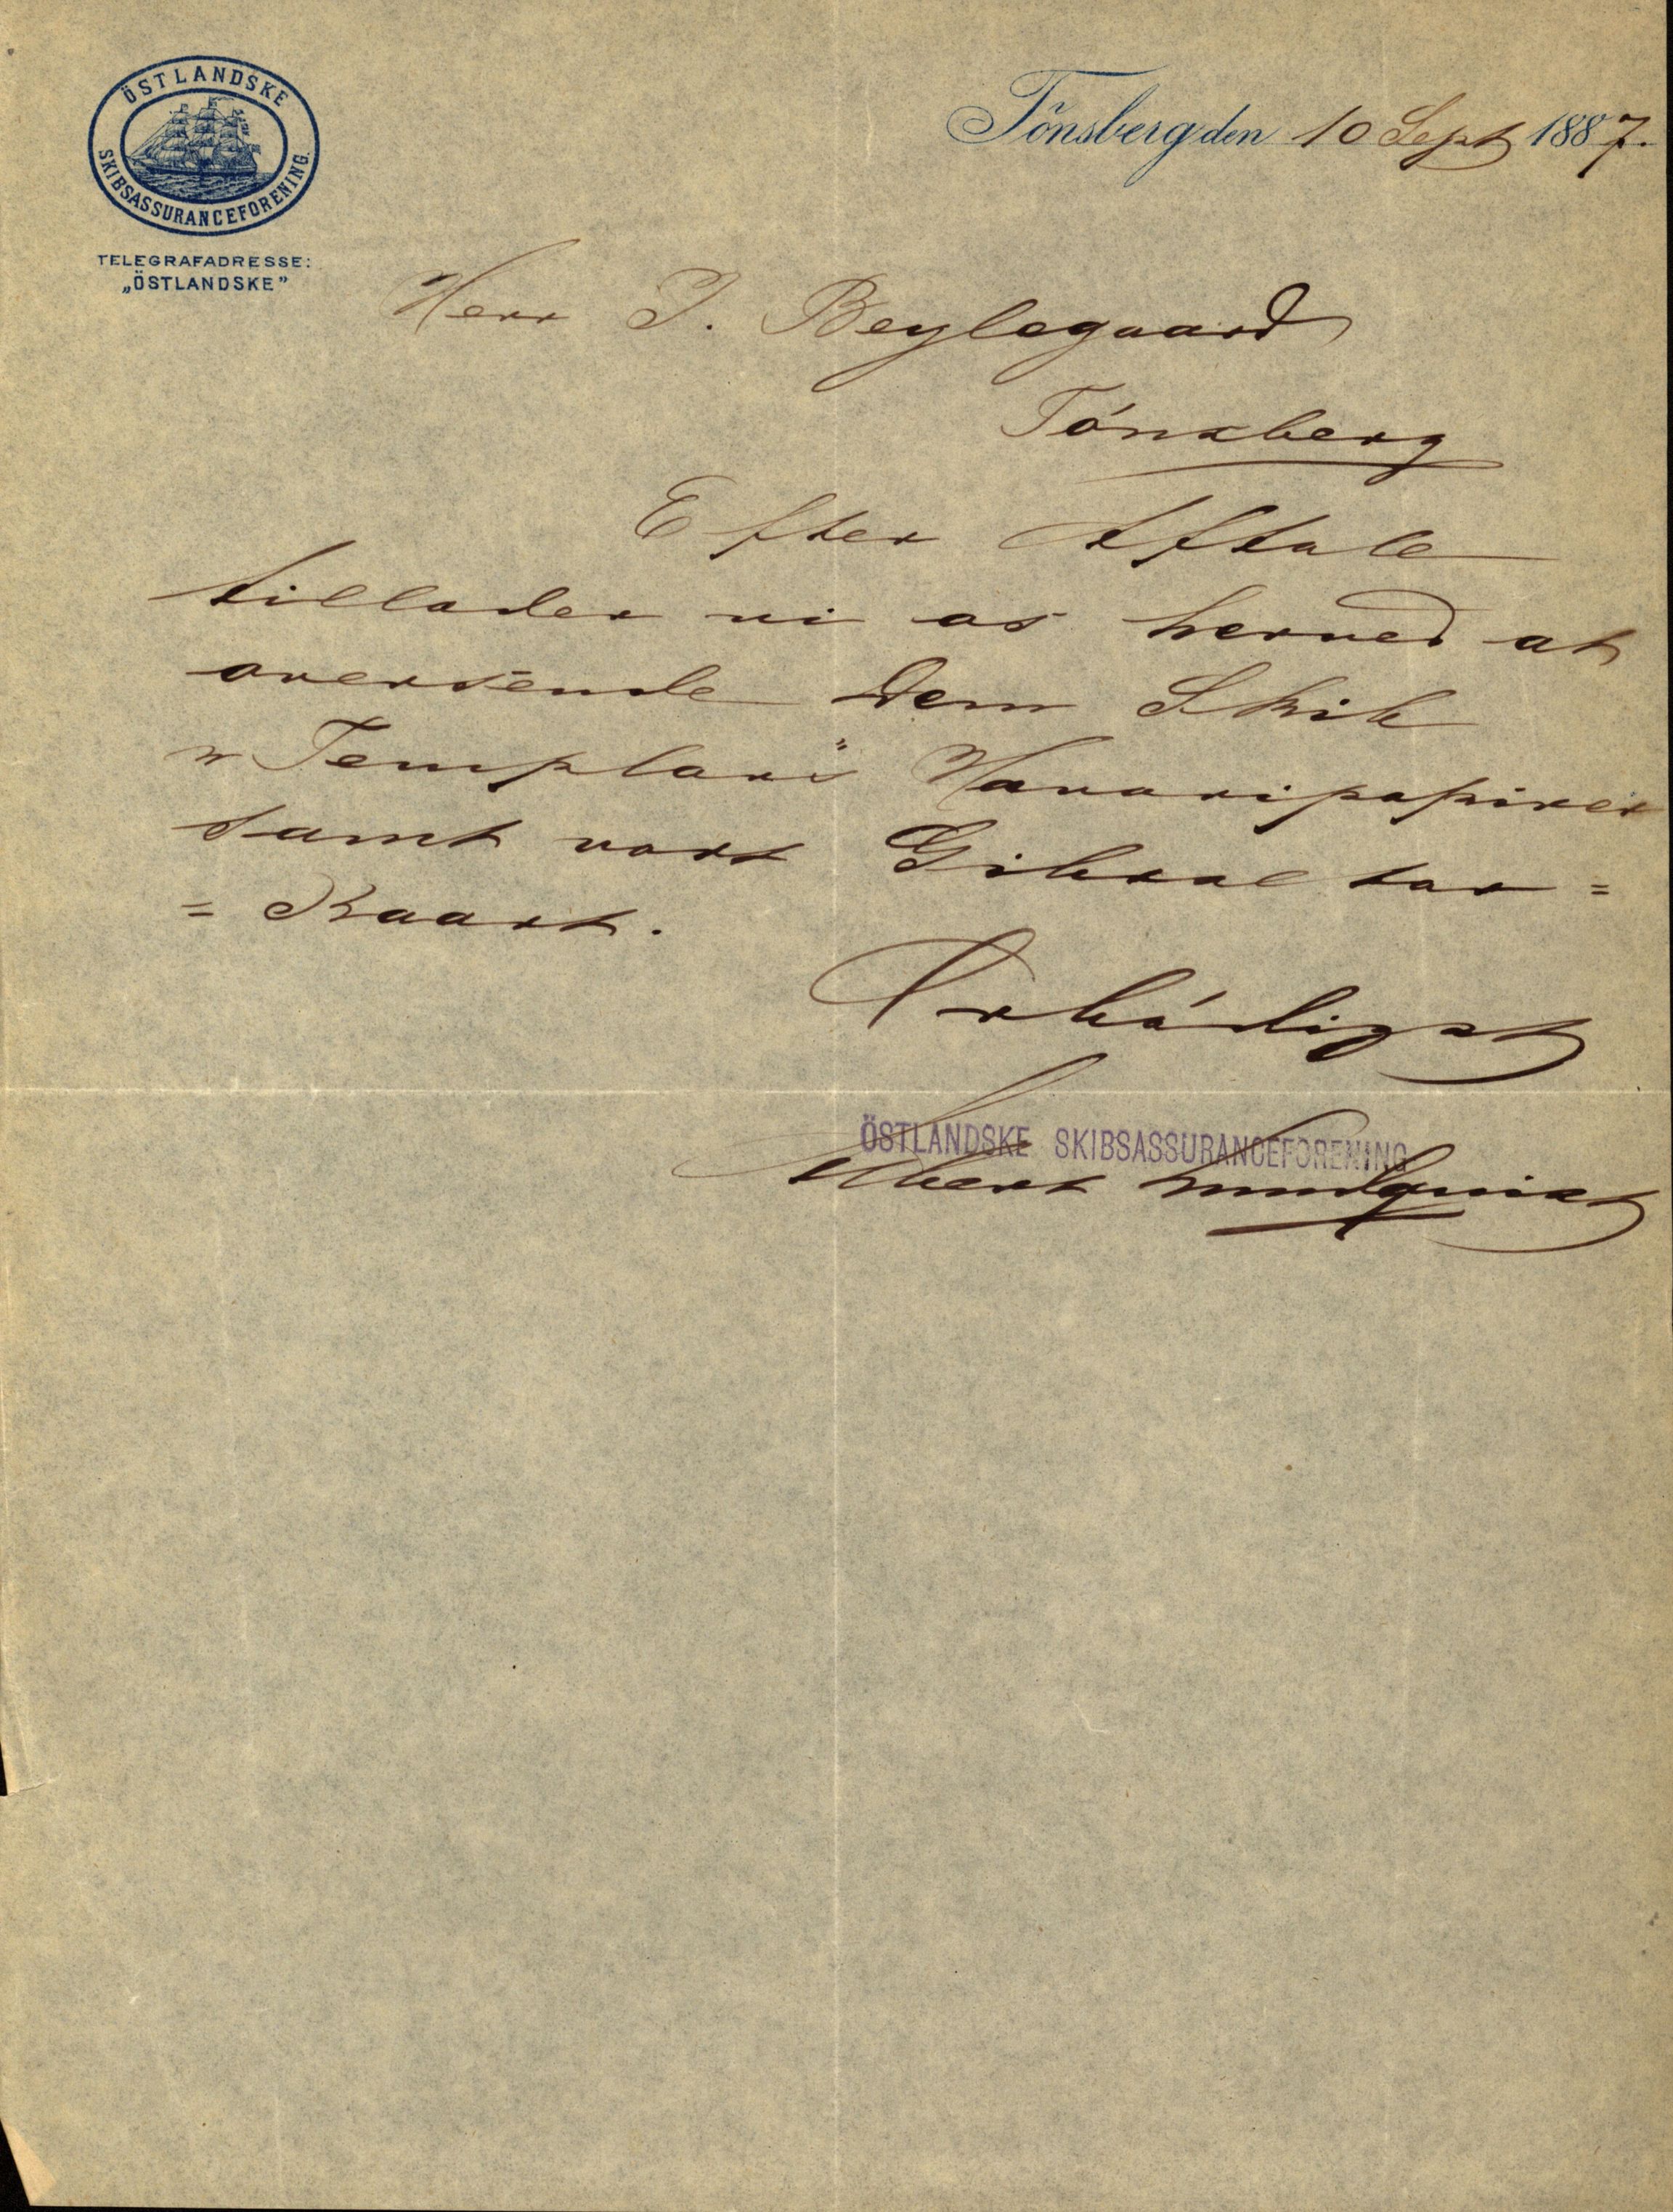 ÖSTLANDSKE
SKIBSASSURANCEFORENING.
TELEGRAFADRESSE:
„ÖSTLANDSKE”
Tönsberg den 10 Sept 1887.
Herr J. Beylegaard
Tönsberg
Efter Aftale
tillader vi os herved at
oversende Dem Skib
„Templars" Havaripapirer
samt vort Gibraltar=
=Kaart.
Ærbödigst
ÖSTLANDSKE SKIBSASSURANCEFORENING
Albert Lundquist